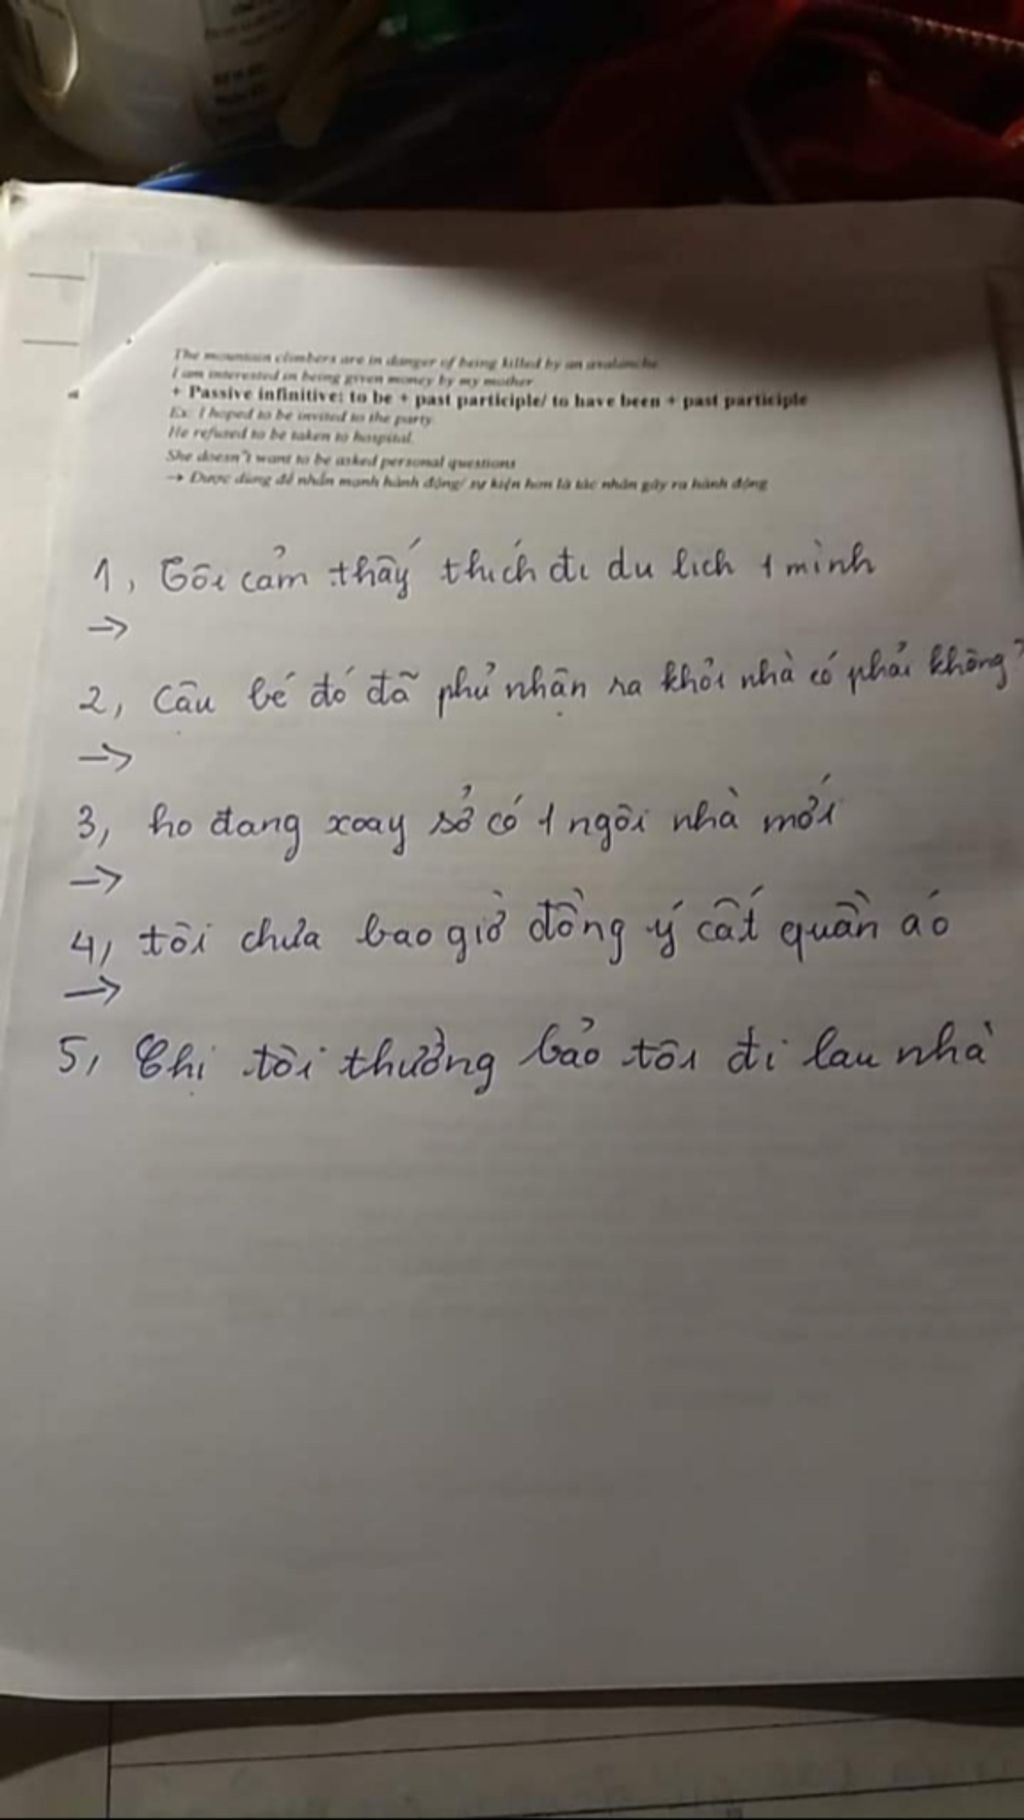 The mountain climbers are in danger of being killed by an avalanche
I am interested in being given money by my mother
+ Passive infinitive: to be + past participle/ to have been + past participle
Ex: I hoped to be invited to the party.
He refused to be taken to hospital.
She doesn"t want to be asked personal questions
→ Được dùng để nhấn mạnh hành động/ sự kiện hơn là tác nhân gây ra hành động
1, Tôi cảm thấy thích đi du lich 1 mình
→
2, Cậu bé đó đã phủ nhận ra khỏi nhà có phải không?
→
3, ho đang xoay sở có 1 ngôi nhà mới
→
4, tôi chưa bao giờ đồng ý cất quần áo
→
5, Chị tôi thường bảo tôi đi lau nhà